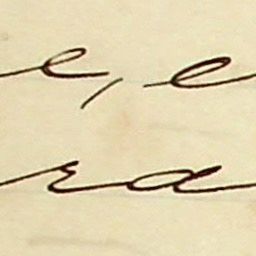 e, e
ra